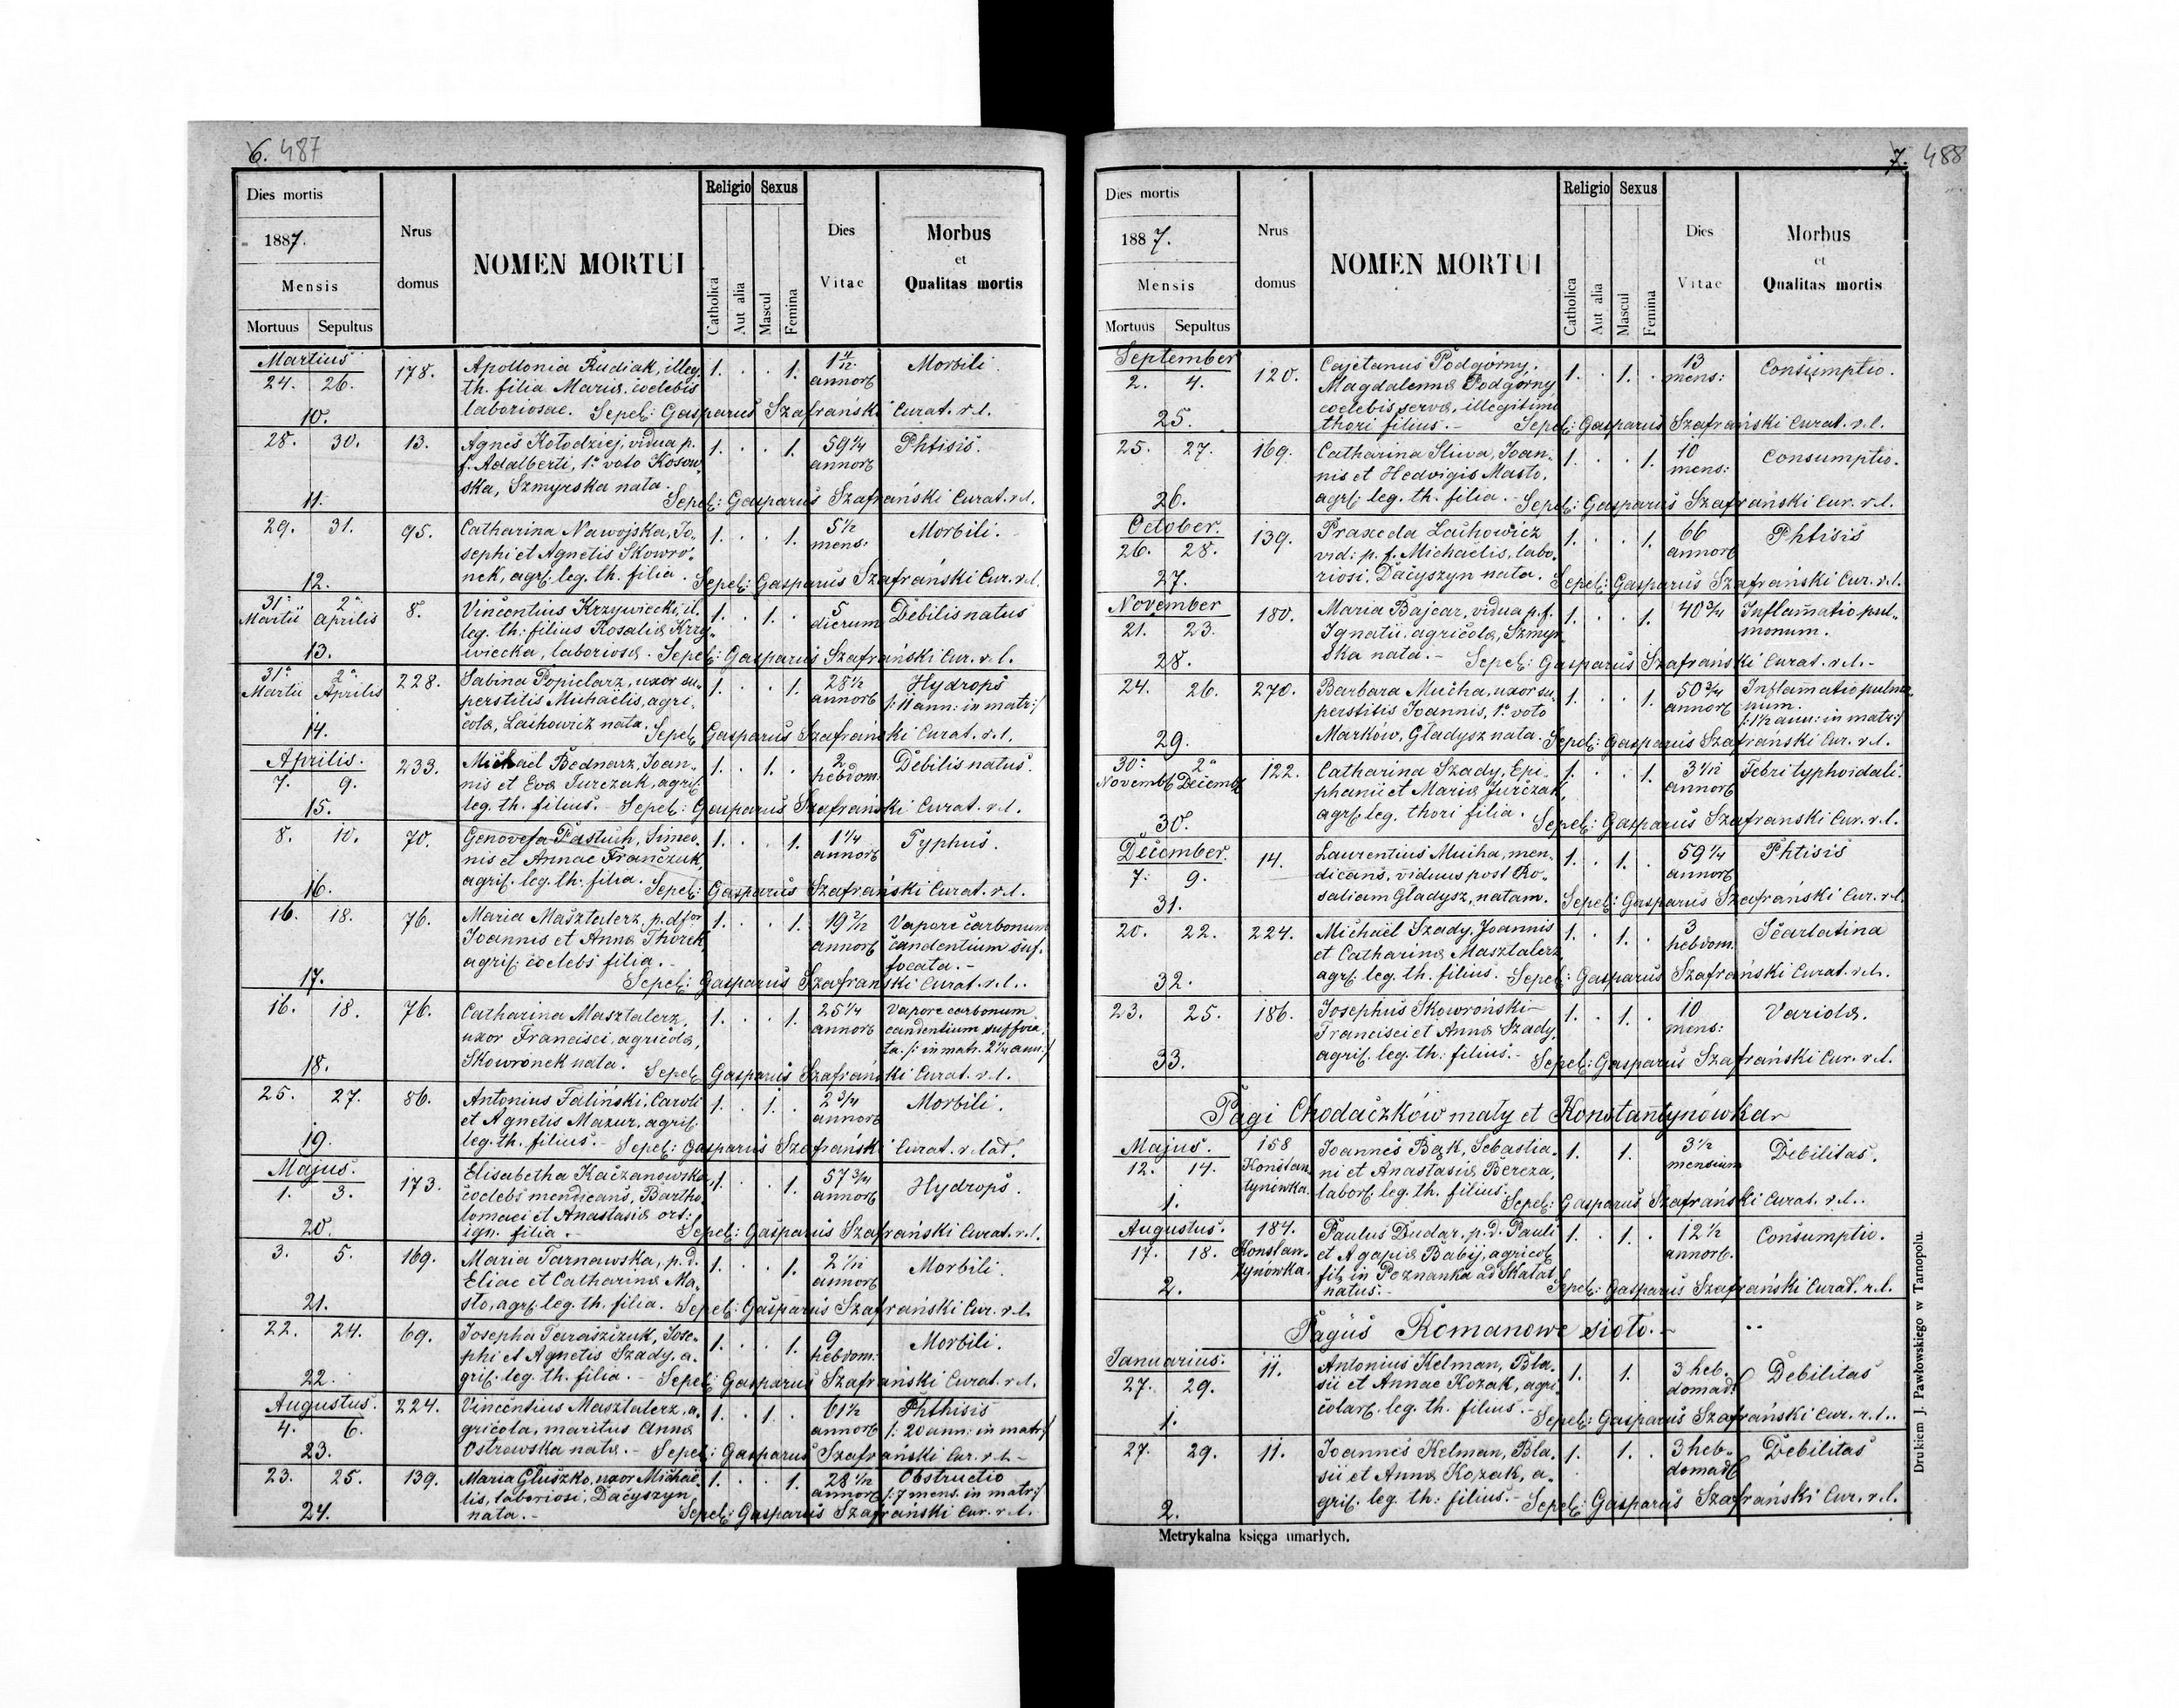 6. 487
Dies mortis
1887.
Mensis
Mortuus Sepultus
Nrus domus
NOMEN MORTUI
Religio Sexus
Catholica
Aut alia
Mascul
Femina
Dies Vitae
Morbus
et
Qualitas mortis
Martius
24. 26. 178. Apollonia Rudiak, illeg. 1. . . 1. 1 4/12 annor Morbili.
th. filia Mariæ, coelebis
10. laboriosae. Sepel: Gasparus Szafrański Curat. r.l.
28. 30. 13. Agnes Kołodziej, vidua p. 1. . . 1. 59 1/4 annor Phtisis.
f. Adalberti, 1o voto Kosow-
ska, Szmyrska nata.
11. Sepel: Gasparus Szafrański Curat. r.l.
29. 31. 95. Catharina Nawojska, Jo- 1. . . 1. 5 1/2 mens: Morbili.
sephi et Agnetis Skowro-
12. nek, agr. leg. th. filia. Sepel: Gasparus Szafrański Cur. r.l.
31a Martii 2a Aprilis 8. Vincentius Krzywiecki, il. 1. . 1. . 5 dierum Debilis natus
leg. th: filius Rosaliæ Krzy-
13. wiecka, laboriosæ. Sepel: Gasparus Szafrański Cur. r.l.
31a Martii 2a Aprilis 228. Sabina Popielarz, uxor su- 1. . . 1. 28 1/2 annor Hydrops
perstitis Michaelis, agri- /: 11 ann: in matr:/
colæ, Lachowicz nata.
14. Sepel. Gasparus Szafrański Curat. r.l.
Aprilis.
7. 9. 233. Michaël Bednarz, Joan- 1. . 1. . 2 hebdom. Debilis natus.
nis et Evæ Jurczak, agri.
15. leg. th. filius. - Sepel: Gasparus Szafrański Curat. r.l.
8. 10. 70. Genovefa Pastuch, Simeo- 1. . . 1. 1 1/4 annor Typhus.
nis et Annae Franczuk,
16. agri. leg. th. filia. Sepel: Gasparus Szafrański Curat. r.l.
16. 18. 76. Maria Masztalerz, p. df 1. . . 1. 19 2/12 annor Vapore carbonum
Joannis et Annæ Thorek, candentium suf-
agri. coelebs filia. - focata. -
17. Sepel: Gasparus Szafrański Curat. r.l..
16. 18. 76. Catharina Masztalerz, 1. . . 1. 25 1/4 annor Vapore carbonum
uxor Francisci, agricolæ, candentium suffoca-
Skowronek nata. ta. /: in matr. 2 1/4 ann:/
18. Sepel. Gasparus Szafrański Curat. r.l.
25. 27. 86. Antonius Faliński, Caroli 1. . 1. . 2 3/4 annor Morbili.
et Agnetis Mazur, agri.
19. leg. th. filius. - Sepel: Gasparus Szafrański Curat. r. lat.
Majus.
1. 3. 173. Elisabetha Kaczanowska, 1. . . 1. 57 3/4 annor Hydrops.
coelebs mendicans, Bartho-
lomaei et Anastasiæ ort:
20. ign. filia. - Sepel: Gasparus Szafrański Curat. r.l.
3. 5. 169. Maria Tarnawska, p.d. 1. . . 1. 2 1/12 annor Morbili.
Eliae et Catharinæ Ma-
21. sto, agr. leg. th. filia. Sepel: Gasparus Szafrański Cur. r.l.
22. 24. 69. Josepha Taraszczuk, Jose- 1. . . 1. 9 hebdom. Morbili.
phi et Agnetis Szady, a-
22. gri. leg. th. filia. - Sepel: Gasparus Szafrański Curat. r.l.
Augustus. 224. Vincentius Masztalerz, a- 1. . 1. . 61 1/2 annor Phthisis
4. 6. gricola, maritus Annæ /: 20 ann: in matr:/
23. Ostrowska natæ. - Sepel: Gasparus Szafrański Cur. r.l. -
23. 25. 139. Maria Głuszko, uxor Michaë- 1. . . 1. 28 1/12 annor Obstructio
lis, laboriosi, Daćyszyn /: 7 mens. in matr:/
24. nata. - Sepel: Gasparus Szafrański Cur. r.l.
7. 488
Dies mortis
1887.
Mensis
Mortuus Sepultus
Nrus domus
NOMEN MORTUI
Religio Sexus
Catholica
Aut alia
Mascul
Femina
Dies Vitae
Morbus
et
Qualitas mortis
September
2. 4. 120. Cajetanus Podgórny, 1. . 1. . 13 mens: Consumptio.
Magdalennæ Podgórny
coelebis servæ, illegitimi
25. thori filius. - Sepel: Gasparus Szafrański Curat. r.l.
25. 27. 169. Catharina Sliwa, Joan- 1. . . 1. 10 mens: Consumptio.
nis et Hedvigis Masto,
26. agr. leg. th. filia. - Sepel: Gasparus Szafrański Cur. r.l.
October.
26. 28. 139. Praxeda Lachowicz 1. . . 1. 66 annor Phtisis
vid: p. f. Michaelis, labo-
27. riosi, Daćyszyn nata. Sepel: Gasparus Szafrański Cur. r.l.
November
21. 23. 180. Maria Bajcar, vidua p.f. 1. . . 1. 40 3/4 Inflamatio pul-
Ignatii, agricolæ, Szmyr- monum.
28. ska nata. - Sepel: Gasparus Szafrański Curat. r.l. -
24. 26. 270. Barbara Mucha, uxor su- 1. . . 1. 50 3/4 annor Inflamatio pulmo-
perstitis Joannis, 1o voto num.
Marków, Gładysz nata. /: 1 1/2 ann: in matr:/
29. Sepel: Gasparus Szafrański Cur. r.l.
30a Novemb 2a Decemb 122. Catharina Szady, Epi- 1. . . 1. 3 1/12 annor Febri typhoidali.
phanii et Mariæ Jurczak,
30. agr. leg. thori filia. Sepel: Gasparus Szafranski Cur. r.l.
December.
7. 9. 14. Laurentius Mucha, men- 1. . 1. . 59 1/4 annor Phtisis
dicans, viduus post Ro-
31. saliam Gładysz, natam. Sepel: Gasparus Szafrański Cur. r.l.
20. 22. 224. Michaël Szady, Joannis 1. . 1. . 3 hebdom. Scarlatina
et Catharinæ Masztalerz
32. agr. leg. th. filius. Sepel: Gasparus Szafrański Curat. r.l.
23. 25. 186. Josephus Skowroński 1. . 1. . 10 mens: Variolæ.
Francisci et Annæ Szady,
33. agri. leg. th: filius. - Sepel: Gasparus Szafrański Cur. r.l.
Pagi Chodaczków mały et Konstantynówka
Majus. 158 Joannes Bąk, Sebastia- 1. 1. 3 1/2 mensium Debilitas.
12. 14. Konstan- ni et Anastasiæ Bereza,
tynówka. labor. leg. th. filius.
1. Sepel: Gasparus Szafrański Curat. r.l..
Augustus. 184. Paulus Dudar, p.d. Pauli 1. . 1. . 12 1/2 annor. Consumptio.
17. 18. Konstan- et Agapiæ Babij, agricol
tynówka. fil. in Poznanka ad Skałat
2. natus. - Sepel: Gasparus Szafrański Curat. r.l.
Pagus Romanowe sioło. -
Januarius. 11. Antonius Kelman, Bla- 1. 1. 3 heb- domad. Debilitas
27. 29. sii et Annae Kozak, agri-
1. colar. leg. th. filius. - Sepel: Gasparus Szafrański Cur. r.l..
27. 29. 11. Joannes Kelman, Bla- 1. 1. . 3 heb- domad Debilitas
sii et Annæ Kozak, a-
2. gri. leg. th: filius. - Sepel: Gasparus Szafrański Cur. r.l.
Metrykalna księga umarłych.
Drukiem J. Pawłowskiego w Tarnopolu.